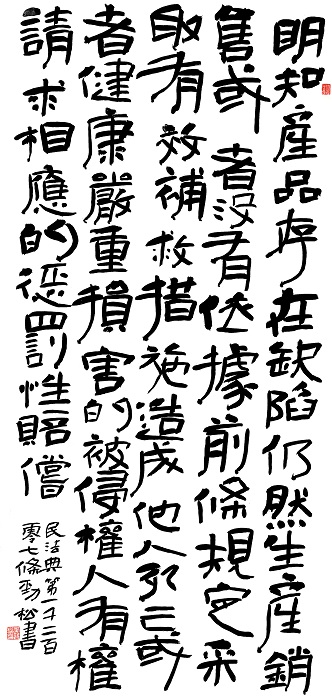 明知產品存在缺陷仍然生產銷
售或者没有依據前條規定采
取有效補救措施造成他人死亡或
者健康嚴重損害的被侵權人有權
請求相應的懲罰性賠償
民法典第一千二百
零七條勁松書